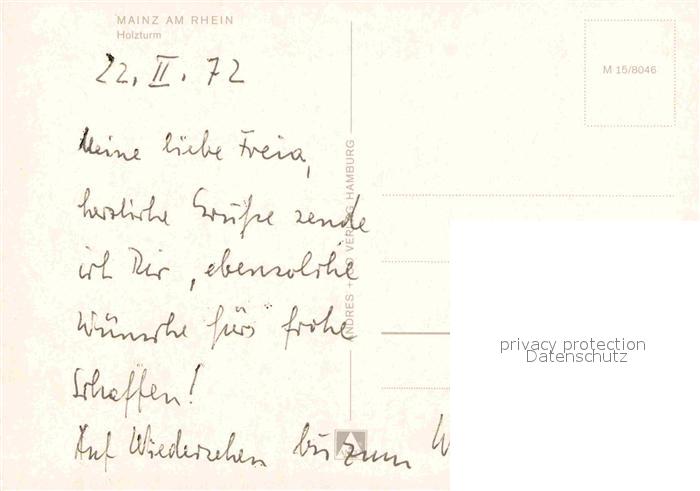 MAINZ AM RHEIN
Holzturm
M 15/8046
22. II. 72
Meine liebe Freia,
herzliche Grüße sende
ich Dir, ebensolche
Wünsche fürs frohe
Schaffen!
Auf Wiedersehen bis zum W
VERLAG HAMBURG
privacy protection
Datenschutz